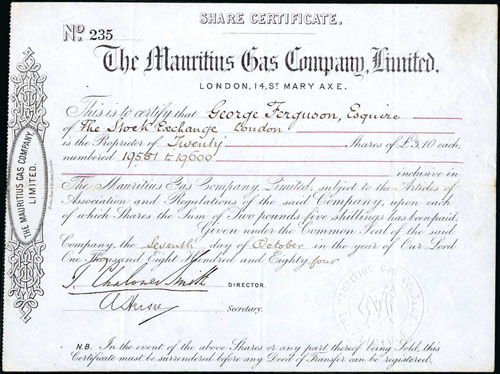 SHARE CERTIFICATE.
No. 235
The Mauritius Gas Company, Limited.
LONDON, 14, ST MARY AXE.
This is to certify that George Ferguson, Esquire
of The Stock Exchange London
is the Proprietor of Twenty Shares of £3,10 each,
numbered 19581 to 19600
inclusive in
The Mauritius Gas Company, Limited, subject to the Articles of
Association and Regulations of the said Company, upon each
of which Shares the Sum of Two pounds five shillings has been paid.
Given under the Common Seal of the said
Company, the Seventh day of October in the year of Our Lord
One Thousand Eight Hundred and Eighty four
J. Chaloner Smith DIRECTOR.
Secretary.
N.B. In the event of the above Shares or any part thereof being Sold, this
Certificate must be surrendered before any Deed of Transfer can be registered.
THE MAURITIUS GAS COMPANY
LIMITED.
MAURITIUS GAS COMPANY